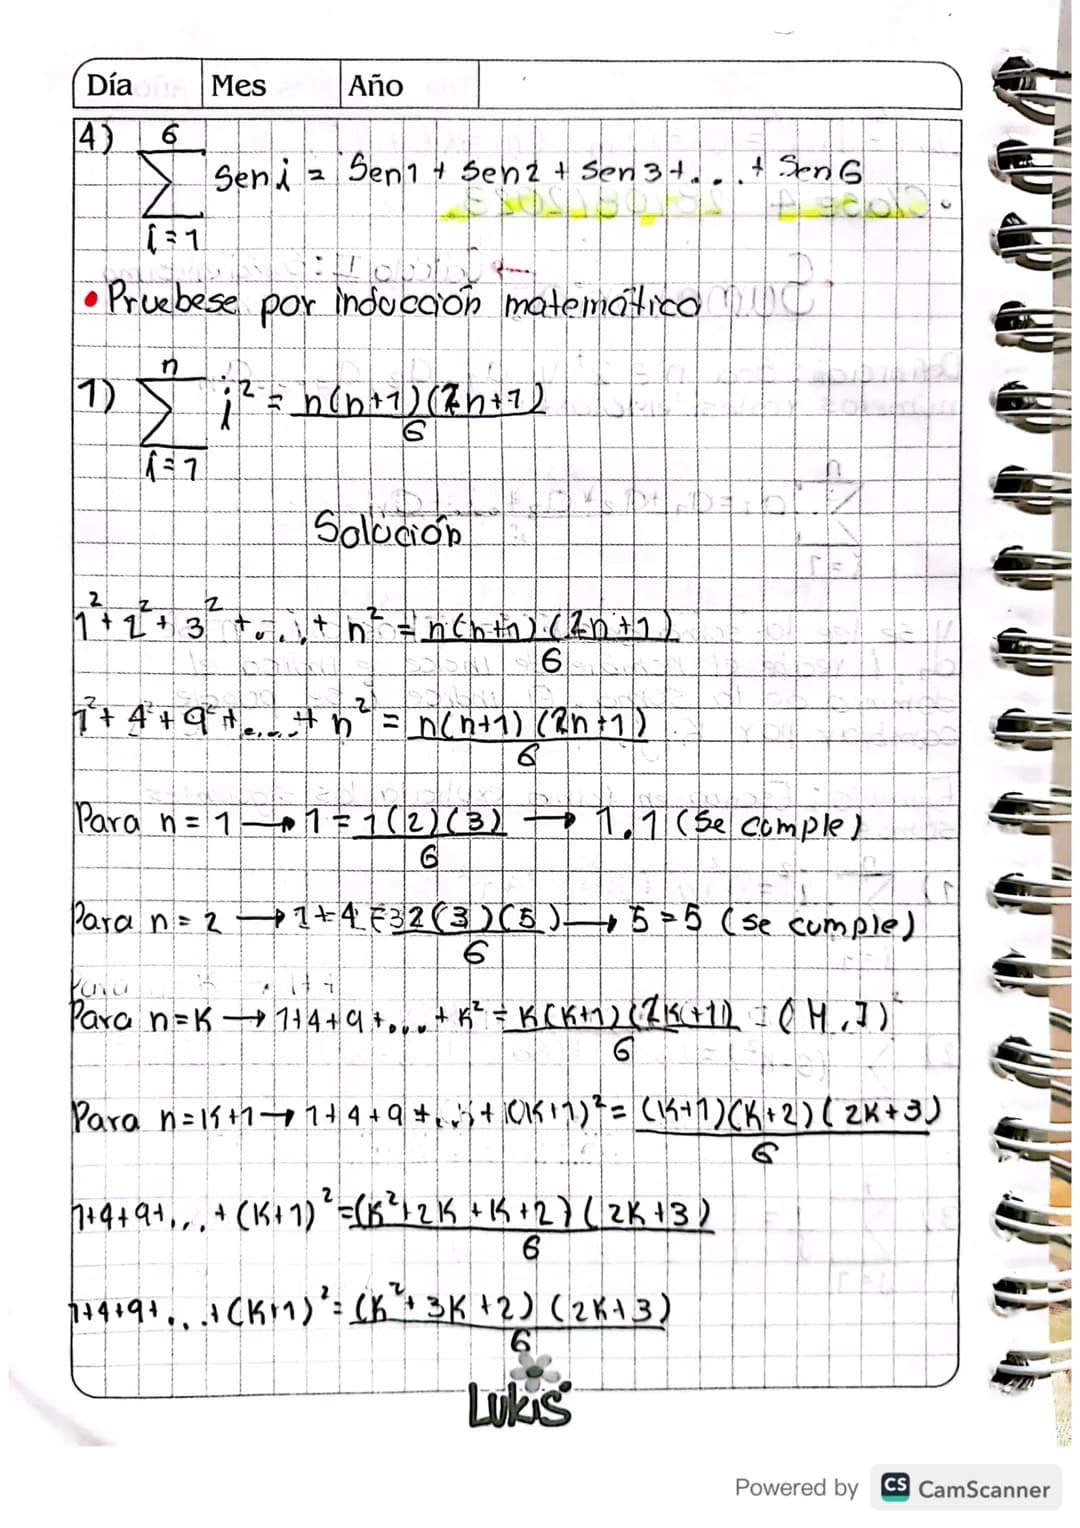 Día Mes Año
4) 6
∑ Sen i = Sen1 + Sen2 + Sen3 + . . . + Sen6
i = 1
• Pruebese por inducción matemático
1) n
∑ i² = n(n+1)(2n+1)
6
i = 1
Solución
1² + 2² + 3² + . . . + n² = n(n+1)(2n+1)
6
1² + 4² + 9² + . . . + n² = n(n+1)(2n+1)
6
Para n = 1 → 1 = 1(2)(3) → 1.1 (Se cumple)
6
Para n = 2 → 1+4 = 2(3)(5) → 5 = 5 (se cumple)
6
Para
Para n=K → 1+4+9+...+K² = K(K+1)(2K+1) = (H.I)
6
Para n=K+1 → 1+4+9+...+(K+1)² = (K+1)(K+2)(2K+3)
6
1+4+9+...+(K+1)² = (K²+2K+K+2)(2K+3)
6
1+4+9+...+(K+1)² = (K²+3K+2)(2K+3)
6
LUKIS
Powered by CS CamScanner